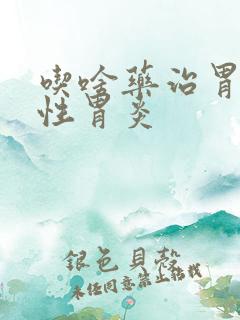 喫啥藥治胃
性胃炎
銀色貝殼
未經同意禁止轉載